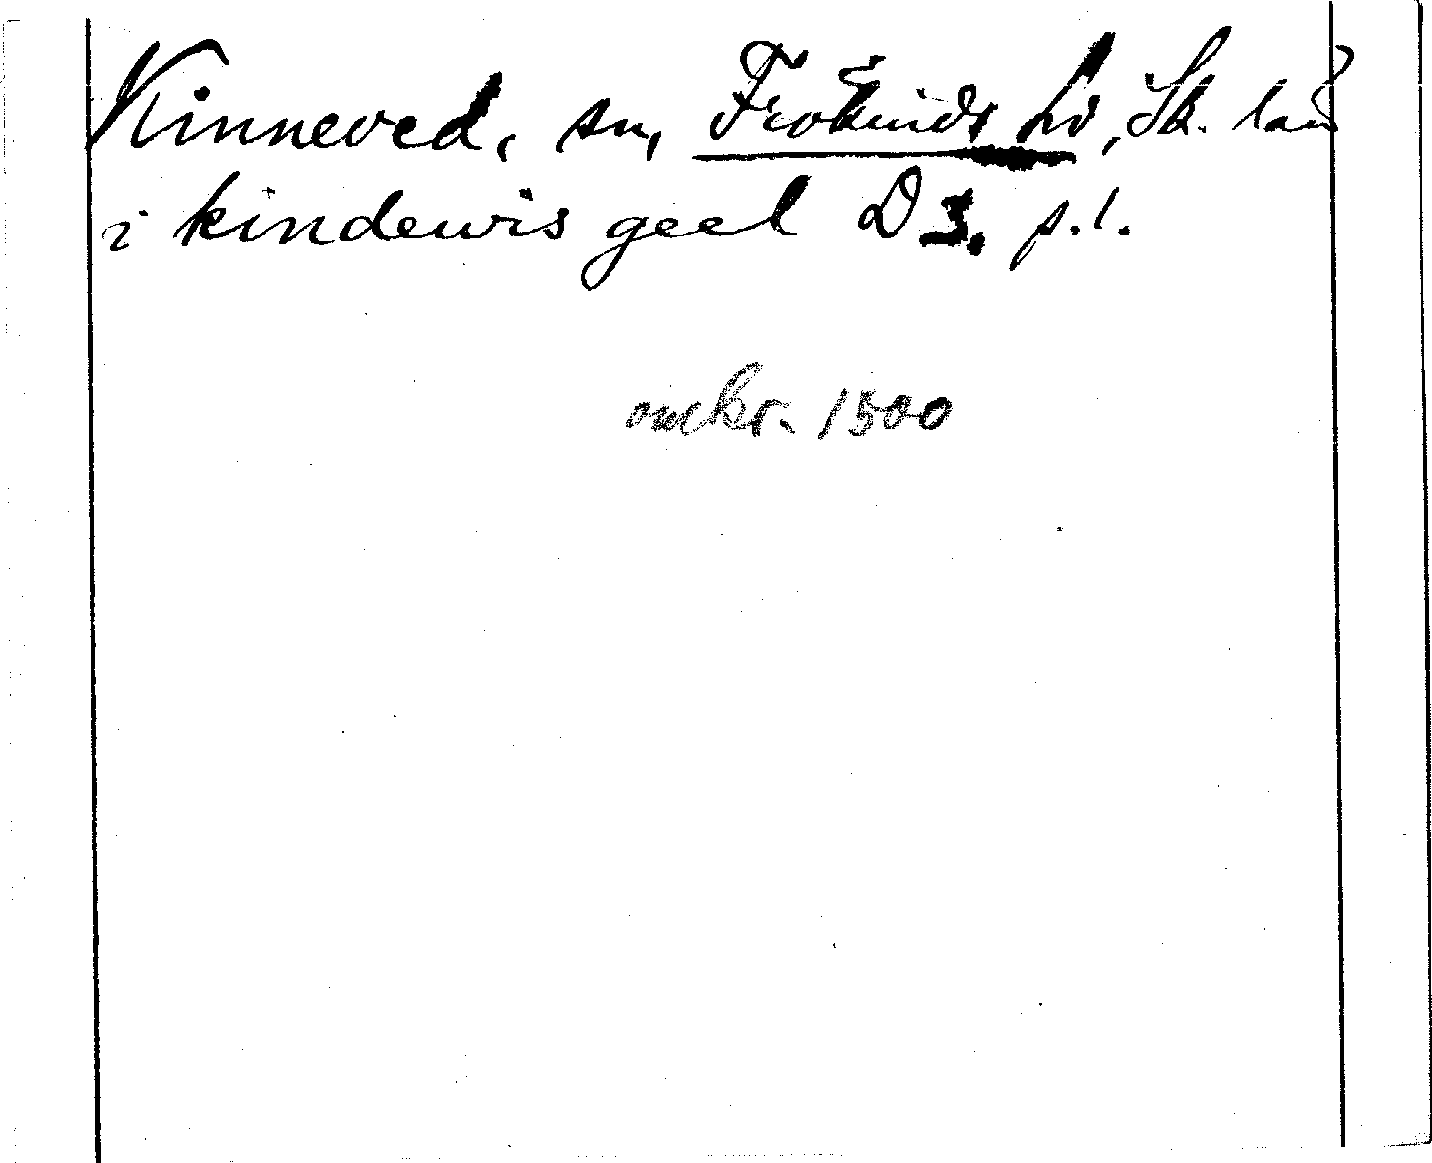 Kinneved, sn, Frökinds hd, Sk. län
i kindewis geel D 3. p. 1.
omkr. 1500